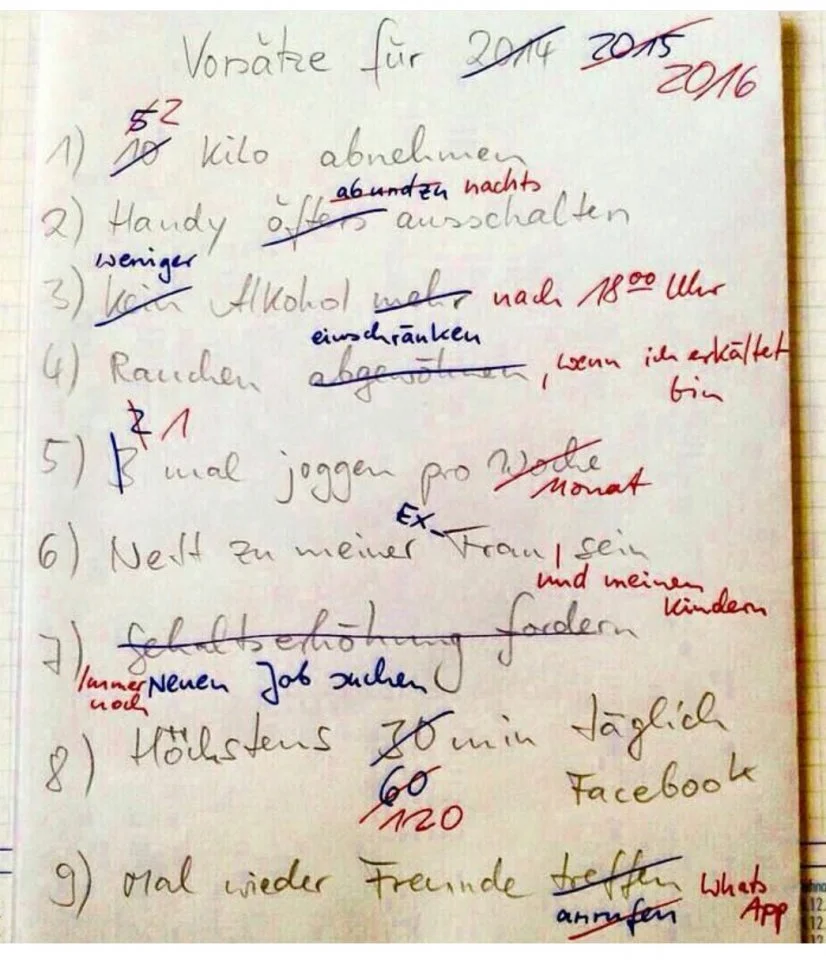 Vorsätze für 2014 2015
2016
5 2
1) 10 Kilo abnehmen
ab und zu nachts
2) Handy öfters ausschalten
weniger
3) kein Alkohol mehr nach 18 00 Uhr
einschränken
4) Rauchen abgewöhnen, wenn ich erkältet
bin
2 1
5) 3 mal joggen pro Woche
Monat
Ex-
6) Nett zu meiner Frau sein
und meinen
Kindern
7) Gehaltserhöhung fordern
Immer Neuen Job suchen
noch
8) Höchstens 30 min täglich
60 Facebook
120
9) Mal wieder Freunde treffen Whats
anrufen App